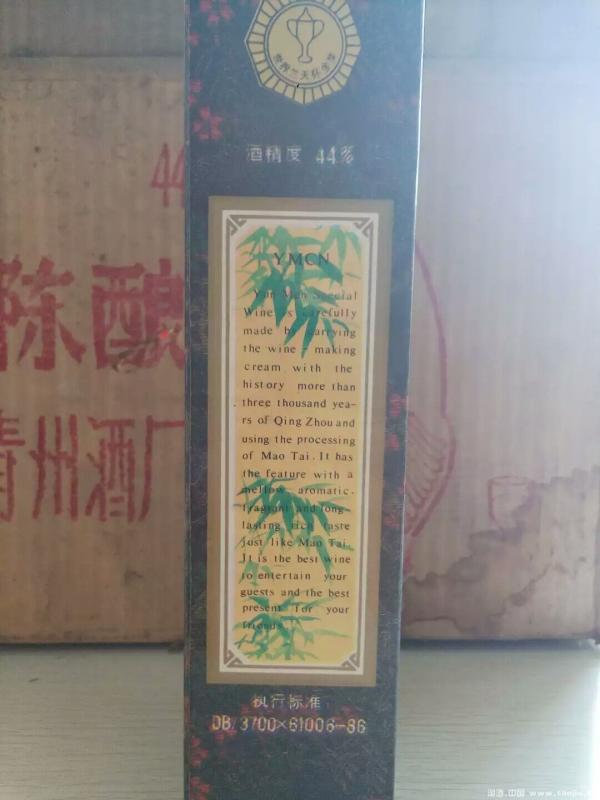 酒精度 44%
44
陈酿
青州酒厂
YMCN
Yun Men Special
Wine is carefully
made by carrying
the wine - making
cream with the
history more than
three thousand yea-
rs of Qing Zhou and
using the processing
of Mao Tai. It has
the feature with a
mellow aromatic.
fragrant and long-
lasting rich taste
just like Mao Tai.
It is the best wine
to entertain your
guests and the best
present for your
friends.
执行标准:
DB/3700×61006-86